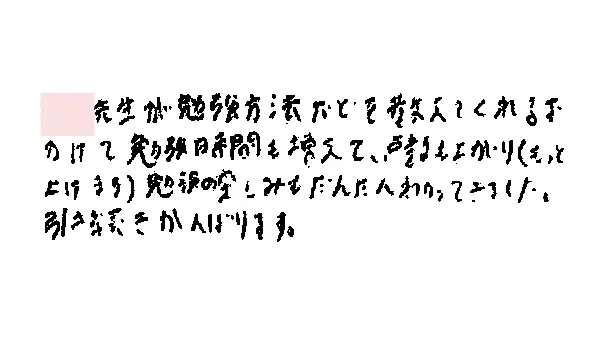 先生が勉強方法などを教えてくれるお
かげで勉強時間も増えて、点数も上がり(もっと
上げます)勉強の楽しみもだんだんわかってきました。
引き続きがんばります。